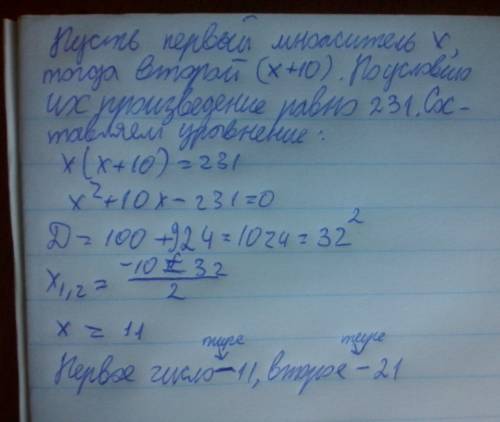 Пусть первый множитель x,
тогда второй (x+10). По условию
их произведение равно 231. Сос-
тавляем уравнение:
x(x+10)=231
x²+10x-231=0
Д=100+924=1024=32²
x₁,₂= (-10±32)/2
x = 11
тире тире
Первое число-11, второе-21